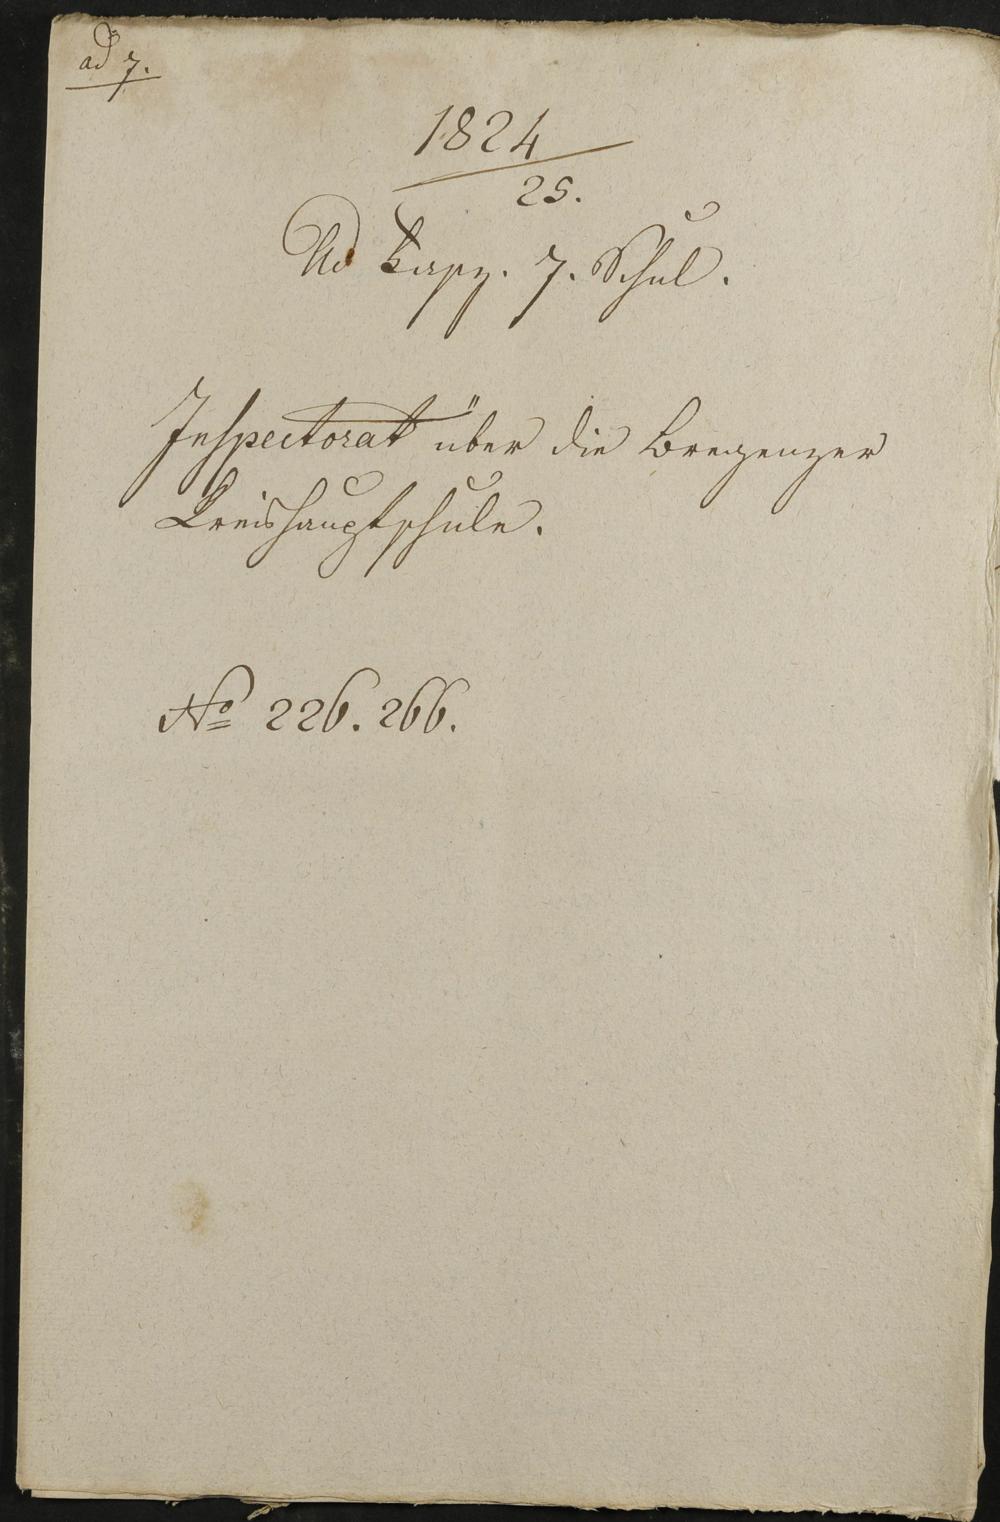 ad 7.
1824
25.
Ad 7. Schul.
Inspectorat über die Bregenzer
Kreishauptschule.
No 226. 266.